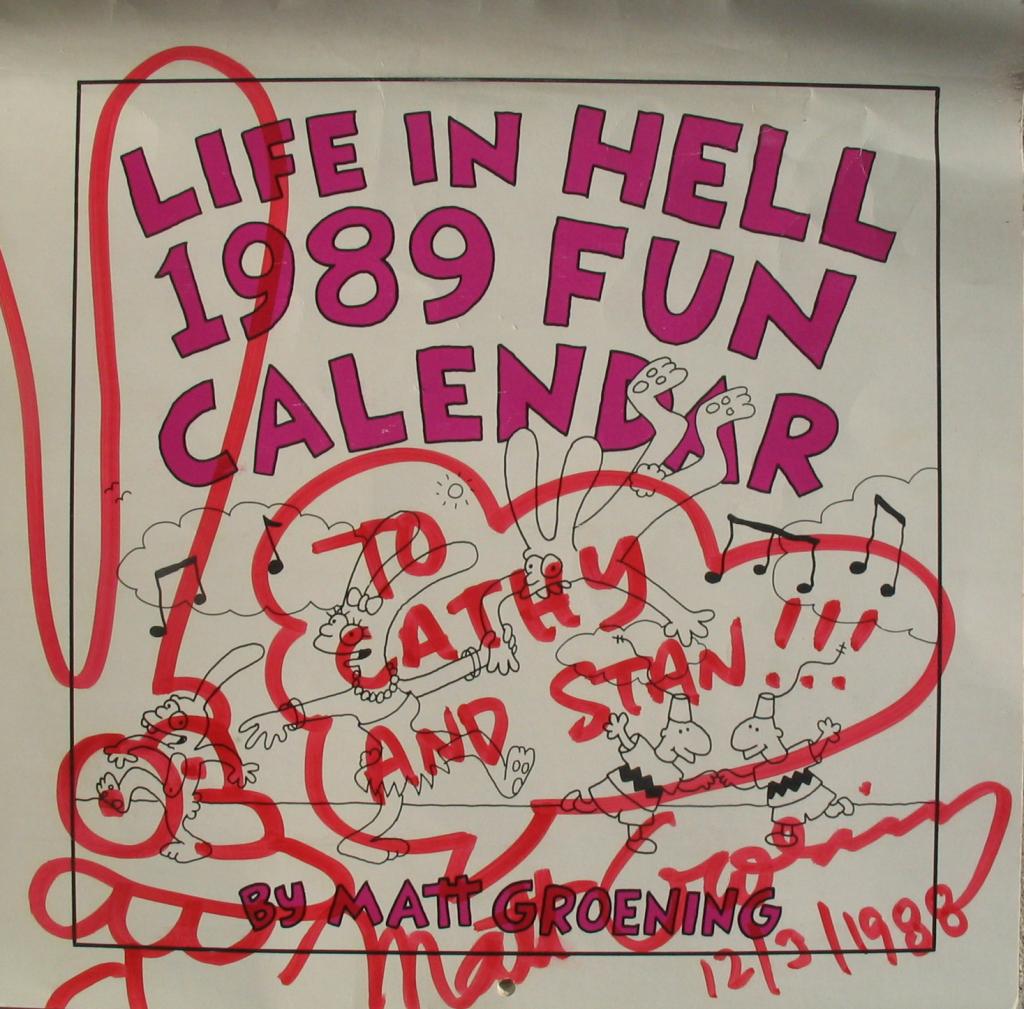 LIFE IN HELL
1989 FUN
CALENDAR
TO
CATHY
AND STAN!!!
BY MATT GROENING
Matt Groening
12/3/1988